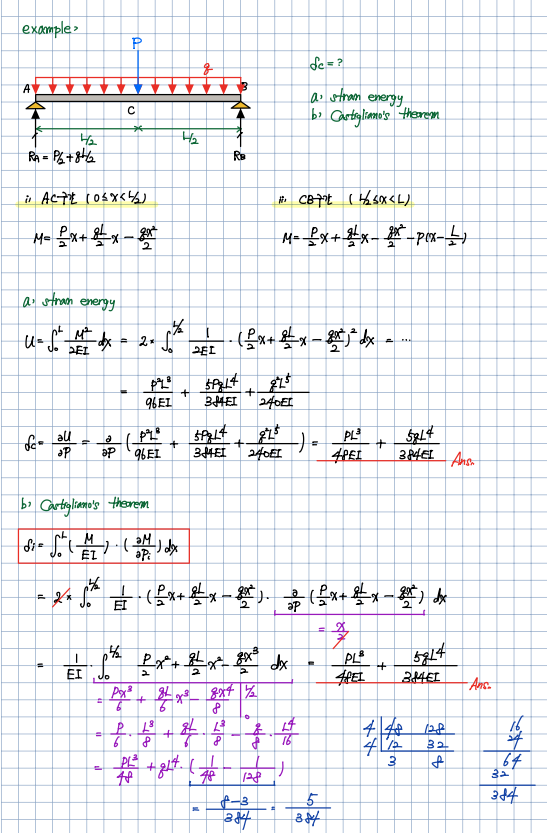 example>
P
δc = ?
q
A
B
C
a) strain energy
b) Castigliano's theorem
L/2
L/2
RA = P/2 + qL/2
RB
i) AC구간 (0≤x<L/2)
ii) CB구간 (L/2≤x<L)
M = P/2 x + qL/2 x - qx²/2
M = P/2 x + qL/2 x - qx²/2 - P(x - L/2)
a) strain energy
U = ∫₀ᴸ M²/2EI dx = 2 × ∫₀^(L/2) 1/2EI · (P/2 x + qL/2 x - qx²/2)² dx = ...
= P²L³/96EI + 5PqL⁴/384EI + q²L⁵/240EI
δc = ∂U/∂P = ∂/∂P (P²L³/96EI + 5PqL⁴/384EI + q²L⁵/240EI) = PL³/48EI + 5qL⁴/384EI
Ans.
b) Castigliano's theorem
δi = ∫₀ᴸ (M/EI) · (∂M/∂Pi) dx
= 2 × ∫₀^(L/2) 1/EI · (P/2 x + qL/2 x - qx²/2) · ∂/∂P (P/2 x + qL/2 x - qx²/2) dx
= x/2
= 1/EI · ∫₀^(L/2) P/2 x² + qL/2 x² - qx³/2 dx = PL³/48EI + 5qL⁴/384EI
Ans.
= Px³/6 + qL/6 x³ - qx⁴/8 |₀^(L/2)
= P/6 · L³/8 + qL/6 · L³/8 - q/8 · L⁴/16
= PL³/48 + qL⁴ · (1/48 - 1/128)
= 8-3/384 = 5/384
4 48 128
4 12 32
3 8
16
24
64
32
384